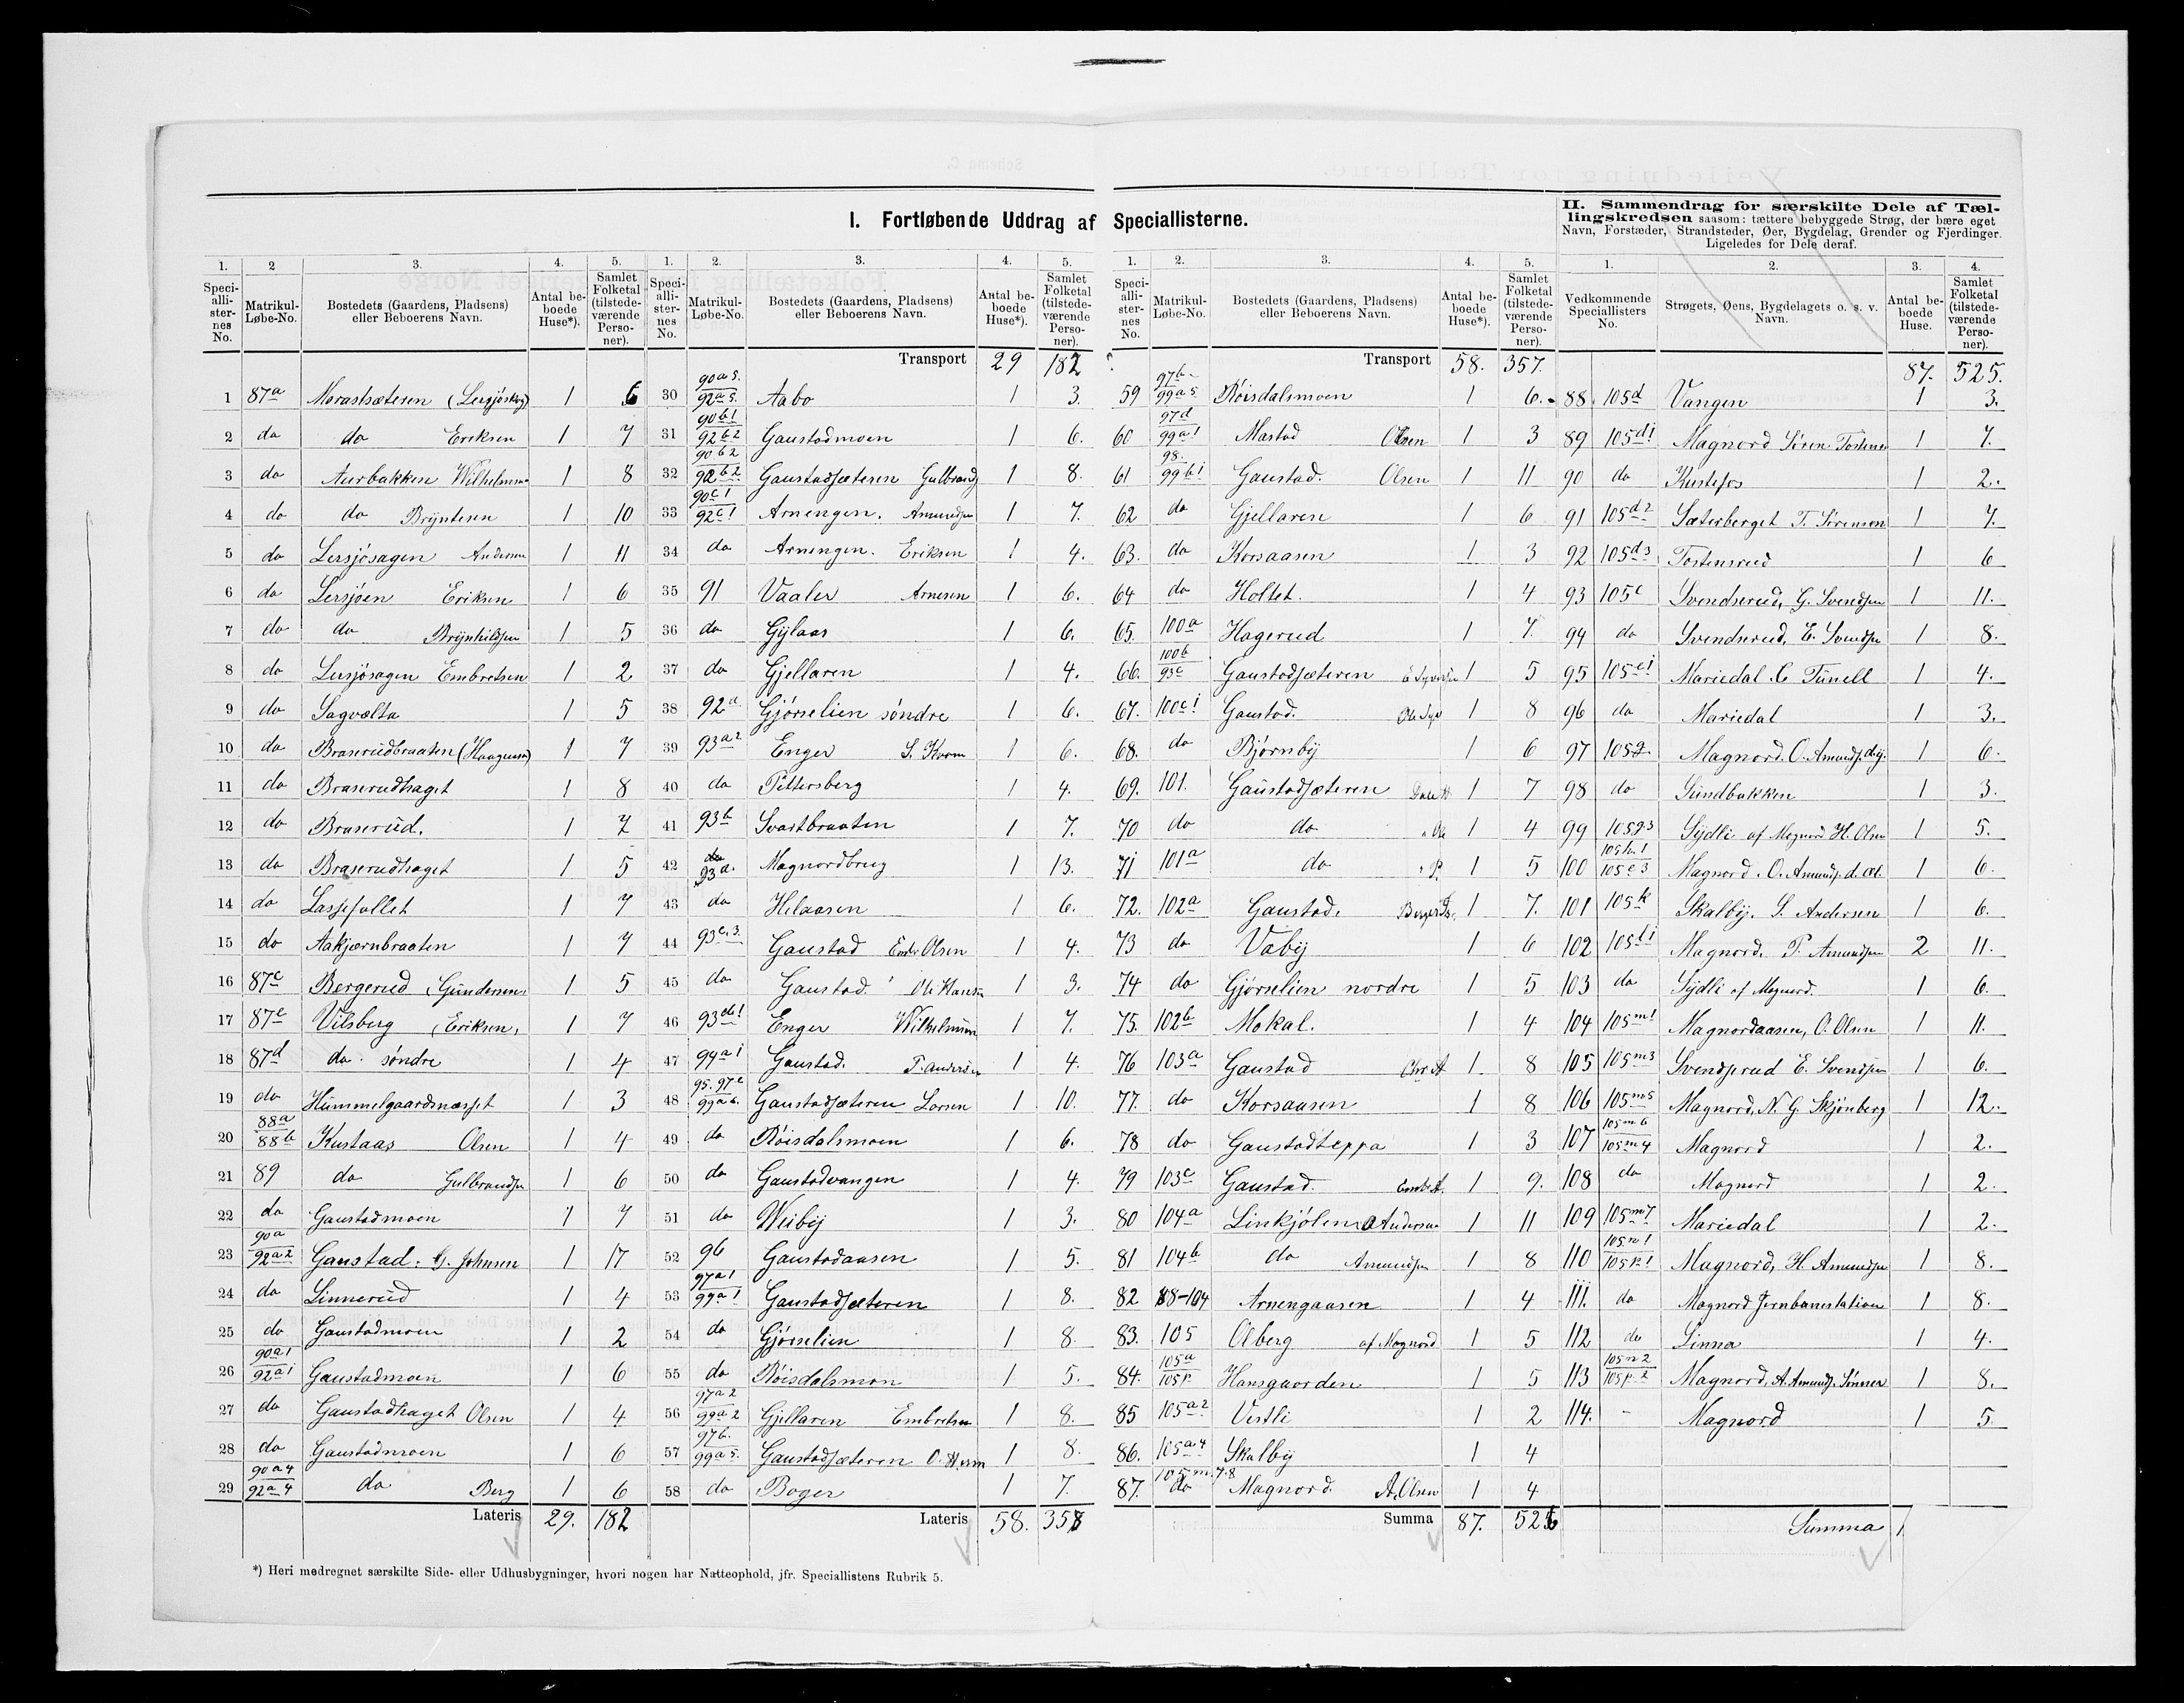 I. Fortløbende Uddrag af Speciallisterne.
II. Sammendrag for særskilte Dele af Tællingskredsen saasom: tættere bebyggede Strøg, der bære eget
Navn, Forstæder, Strandsteder, Øer, Bygdelag, Grender og Fjerdinger.
Ligeledes for Dele deraf.
1. 2 3. 4. 5.
Speciallisternes No. Matrikul-Løbe-No. Bostedets (Gaardens, Pladsens) eller Beboerens Navn. Antal beboede Huse*). Samlet Folketal (tilstedeværende Personer).
1 87a Morastsæteren 1 6
2 do do Eriksen 1 7
3 do Aurbakken 1 8
4 do do Brÿntesen 1 10
5 do Lersjøsagen Andersen 1 11
6 do Lersjøen Eriksen 1 6
7 do do Brÿnhildsen 1 5
8 do Lersjøsagen Embretsen 1 2
9 do Sagvælta 1 5
10 do Braserudbraaten (Haagensen) 1 7
11 do Braserudhaget 1 8
12 do Braserud. 1 7
13 do Braserudhaget 1 5
14 do Lassefallet 1 7
15 do Aakjærnbraaten 1 7
16 87c Bergerud (Gundersen) 1 5
17 87e Vilsberg (Eriksen) 1 7
18 87d do. søndre 1 4
19 do Hummelgaardsnæsset 1 3
20 88a 88b Kustaas Olsen 1 4
21 89 do Gulbrandsen 1 6
22 do Gaustadmoen 1 7
23 90a 92a2 Gaustad. G. Johnsen 1 17
24 do Linnerud 1 4
25 do Gaustadmoen 1 2
26 90a1 92a1 Gaustadmoen 1 6
27 do Gaustadhaget Olsen 1 4
28 do Gaustadmoen 1 6
29 90a4 92a4 do Berg 1 6
Lateris 29. 182
1. 2. 3. 4. 5.
Speciallisternes No. Matrikul-Løbe-No. Bostedets (Gaardens, Pladsens) eller Beboerens Navn. Antal beboede Huse*). Samlet Folketal (tilstedeværende Personer).
Transport 29 182
30 90a5. 92a5. Aabo 1 3.
31 90b1 92b2 Gaustadmoen 1 6.
32 90b2 92b2 Gaustadsæteren Gulbrands 1 8.
33 90c1 92c1 Arnengen. Amundsen 1 7.
34 do Arnengen. Eriksen 1 4.
35 91 Vaaler Arnesen 1 6.
36 do Gjlaas 1 6.
37 do Gjellaren 1 4.
38 92a Gjørselien søndre 1 6.
39 93a2 Enger 1 6.
40 do Pettersberg 1 4.
41 93b Svartbraaten 1 7.
42 93d. Magnordbrug 1 13.
43 do Helaasen 1 6.
44 93c.3. Gaustad Olsen 1 4.
45 do Gaustad Ole Hansen 1 3.
46 93d1 Enger Wilhelmsen 1 7.
47 94a1 Gaustad. P. Andersen 1 4.
48 95. 97c 99a6. Gaustadsæteren Larsen 1 10.
49 do Røisdalsmoen 1 6.
50 do Gaustadvangen 1 4.
51 do Weibÿ 1 3.
52 96 Gaustadaasen 1 5.
53 97a1 99a1 Gaustadsæteren 1 8.
54 do Gjørselien 1 8.
55 do Røisdalsmon 1 5.
56 97a2 99a2 Gjellaren Embretsen 1 8.
57 97b. 99a5. Gaustadsæteren 1 8.
58 do Boger 1 7.
Lateris 58. 357
1. 2. 3. 4. 5.
Speciallisternes No. Matrikul-Løbe-No. Bostedets (Gaardens, Pladsens) eller Beboerens Navn. Antal beboede Huse*). Samlet Folketal (tilstedeværende Personer).
Transport 58. 357.
59 97b 99a5 Røisdalsmoen 1 6.
60 97d 99a1 Mastad Olsen 1 3
61 98. 99b1 Gaustad. Olsen 1 11
62 do Gjellaren 1 6
63. do Korsaasen 1 3
64 do Holtet. 1 4
65. 100a Hagerud 1 7.
66. 100b 93c Gaustadsæteren 1 5
67. 100c1 Gaustad. 1 8
68. do Bjørnbÿ 1 6
69. 101. Gaustadsæteren 1 7
70 do do 1 4
71 101a do 1 5
72. 102a Gaustad. 1 7.
73 do Vabÿ 1 6
74 do Gjørselien nordre 1 5
75. 102b Mokal. 1 4
76 103a Gaustad 1 8
77. do Korsaasen 1 8
78 do Gaustadteppa 1 3
79 103c Gaustad. 1 9.
80 104a Linkjølen Andersen 1 11
81 104b do Amundsen 1 8
82 88-104 Arnengaasen 1 4
83. 105 Olberg af Magnord 1 5
84. 105a 105p Hansgaarden 1 5
85 105a2 Vestli 1 2
86. 105a4 Skalbÿ 1 4
87. 105m.7.8 do Magnord. A. Olsen 1 4
Summa 87. 525
1. 2. 3. 4.
Vedkommende Speciallisters No. Strøgets, Øens, Bygdelagets o. s. v. Navn. Antal beboede Huse. Samlet Folketal (tilstedeværende Personer).
87. 525.
88 105d Vangen 1 3.
89 105d1 Magnord Søren Tostensen 1 7.
90 do Kustefos 1 2.
91 105d2 Sæterberget T. Sørensen 1 7.
92 105d3 Tostensrud 1 6
93 105e Svendserud, G. Svendsen 1 11.
94 do Svendserud, E. Svendsen 1 8.
95 105e1 Mariedal. C Tunell 1 4.
96 do Mariedal 1 3.
97 105g Magnord. O. Amunds. d.y. 1 6.
98 do Sundbakken 1 3.
99 105g3 Sÿdli af Magnord H. Olsen 1 5.
100 105h.1 105e3 Magnord. O. Amunds. d. æl. 1 6.
101 105k Skalbÿ. S. Andersen 1 6.
102 105l1 Magnord. P. Amundsen 2 11.
103 do Sÿdli af Magnord. 1 6.
104 105m1 Magnordaasen, O. Olsen 1 11.
105 105m3 Svendserud E. Svendsen 1 6.
106 105m5 Magnord, N. G. Skjønberg 1 12.
107 105m6 105m4 Magnord 1 2.
108 do Magnord 1 2.
109 105m7 Mariedal 1 2.
110 105n1 105p1 Magnord, H. Amundsen 1 8.
111. do Magnord Jernbanestation 1 8.
112 do Linna 1 4.
113 105n2 105p2 Magnord, A. Amunds. Sønner 1 8.
114. - Magnord 1 5.
Summa
*) Heri medregnet særskilte Side- eller Udhusbygninger, hvori nogen har Natteophold, jfr. Speciallistens Rubrik 5.